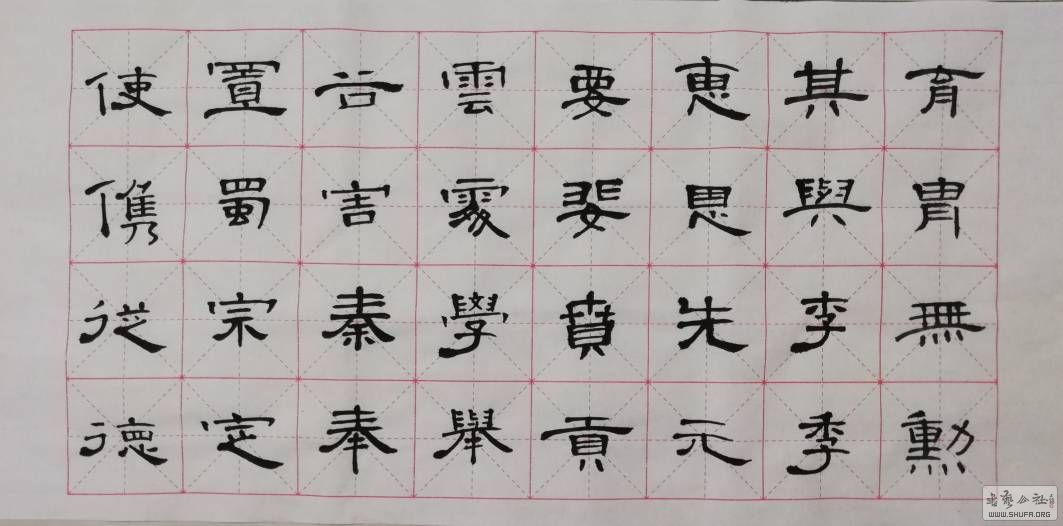 育胄無勳
其與李季
惠思先元
要婓賁貢
雲處學舉
谷害秦奉
置蜀宗定
使儁從德
书艺公社
WWW.SHUFA.ORG